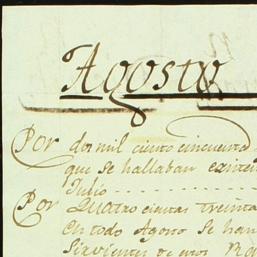 Agosto
Por dos mil ciento cincuenta
que se hallaban existen
Julio
Por Quatro cientas treinta
en todo Agosto se han
Sirvientes de